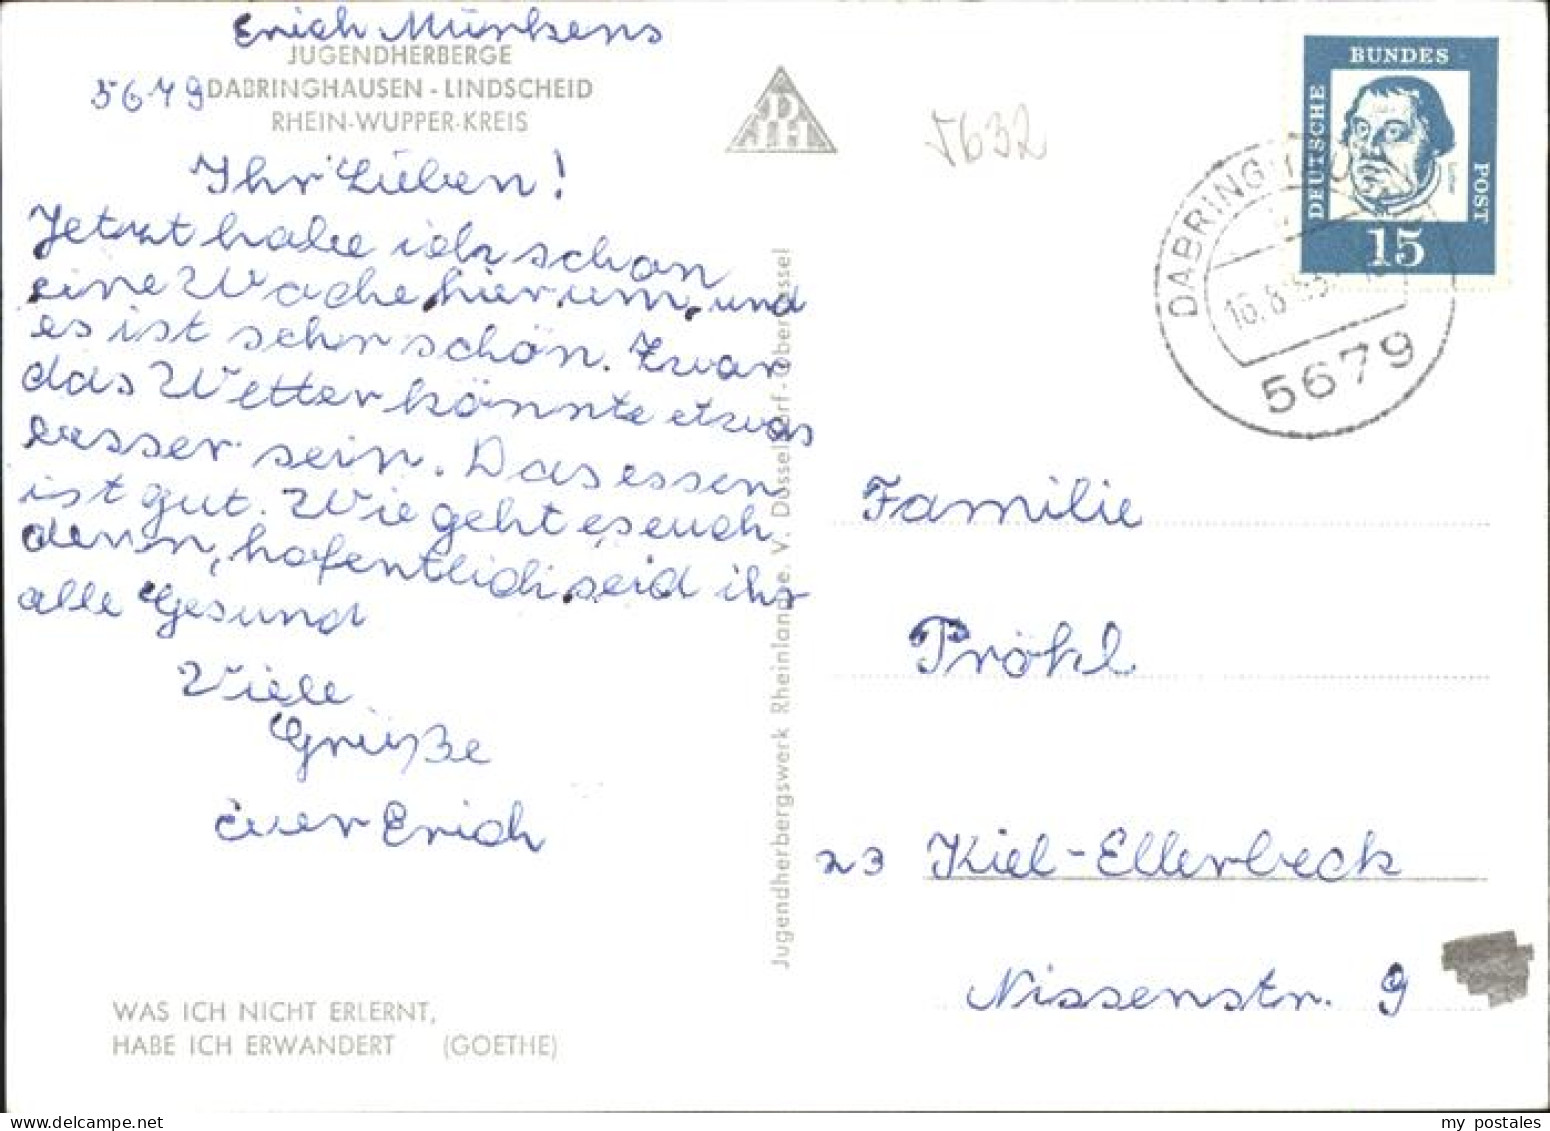 Erich Münkens
JUGENDHERBERGE
5679 DABRINGHAUSEN - LINDSCHEID
RHEIN-WUPPER-KREIS
Ihr Lieben!
Jetzt habe ich schon
eine Woche hier um, und
es ist sehr schön. Zwar
das Wetter könnte etwas
besser sein. Das essen
ist gut. Wie geht es euch
denn, hofentlich seid ihr
alle Gesund
Viele
Grüße
euer Erich
WAS ICH NICHT ERLERNT,
HABE ICH ERWANDERT (GOETHE)
Jugendherbergswerk Rheinland e. V. Düsseldorf-Oberkassel
DJH
5632
DEUTSCHE
BUNDES
POST
Luther
15
DABRINGHAUSEN
16.8.65
5679
Familie
Pröhl
23 Kiel-Ellerbeck
Nissenstr. 9
my postales